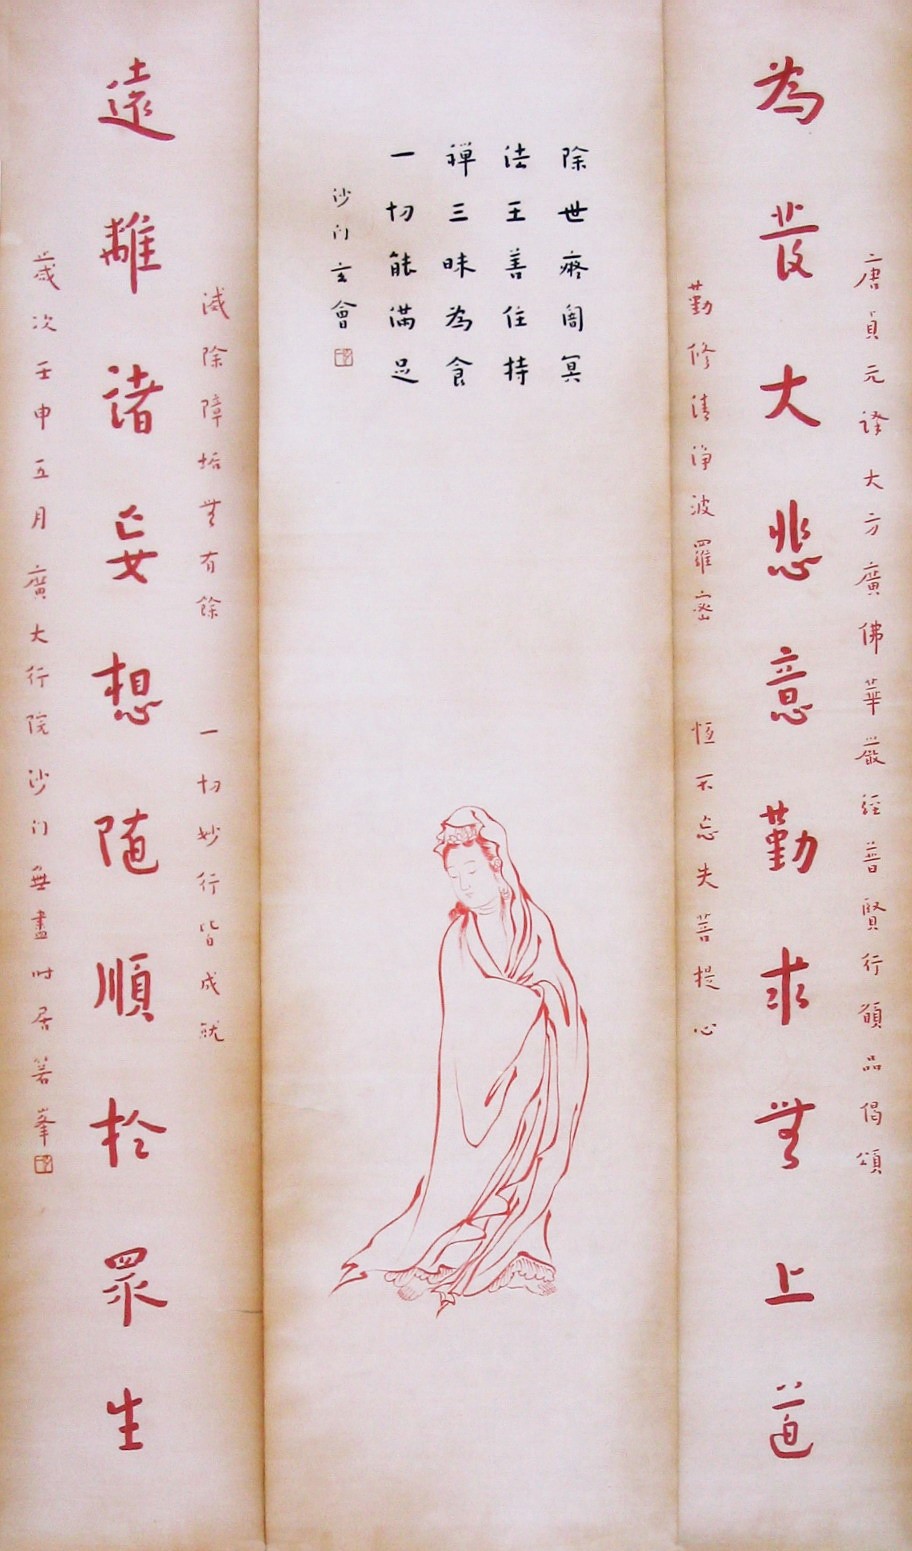 唐貞元譯大方廣佛華嚴經普賢行願品偈頌
為發大悲意勤求無上道
勤修清淨波羅密 恆不忘失菩提心
除世癡闇冥
法王善住持
禪三昧為食
一切能滿足
沙门玄會
滅除障垢無有餘 一切妙行皆成就
遠離諸妄想隨順於眾生
歲次壬申五月廣大行院沙门無盡时居箬峯